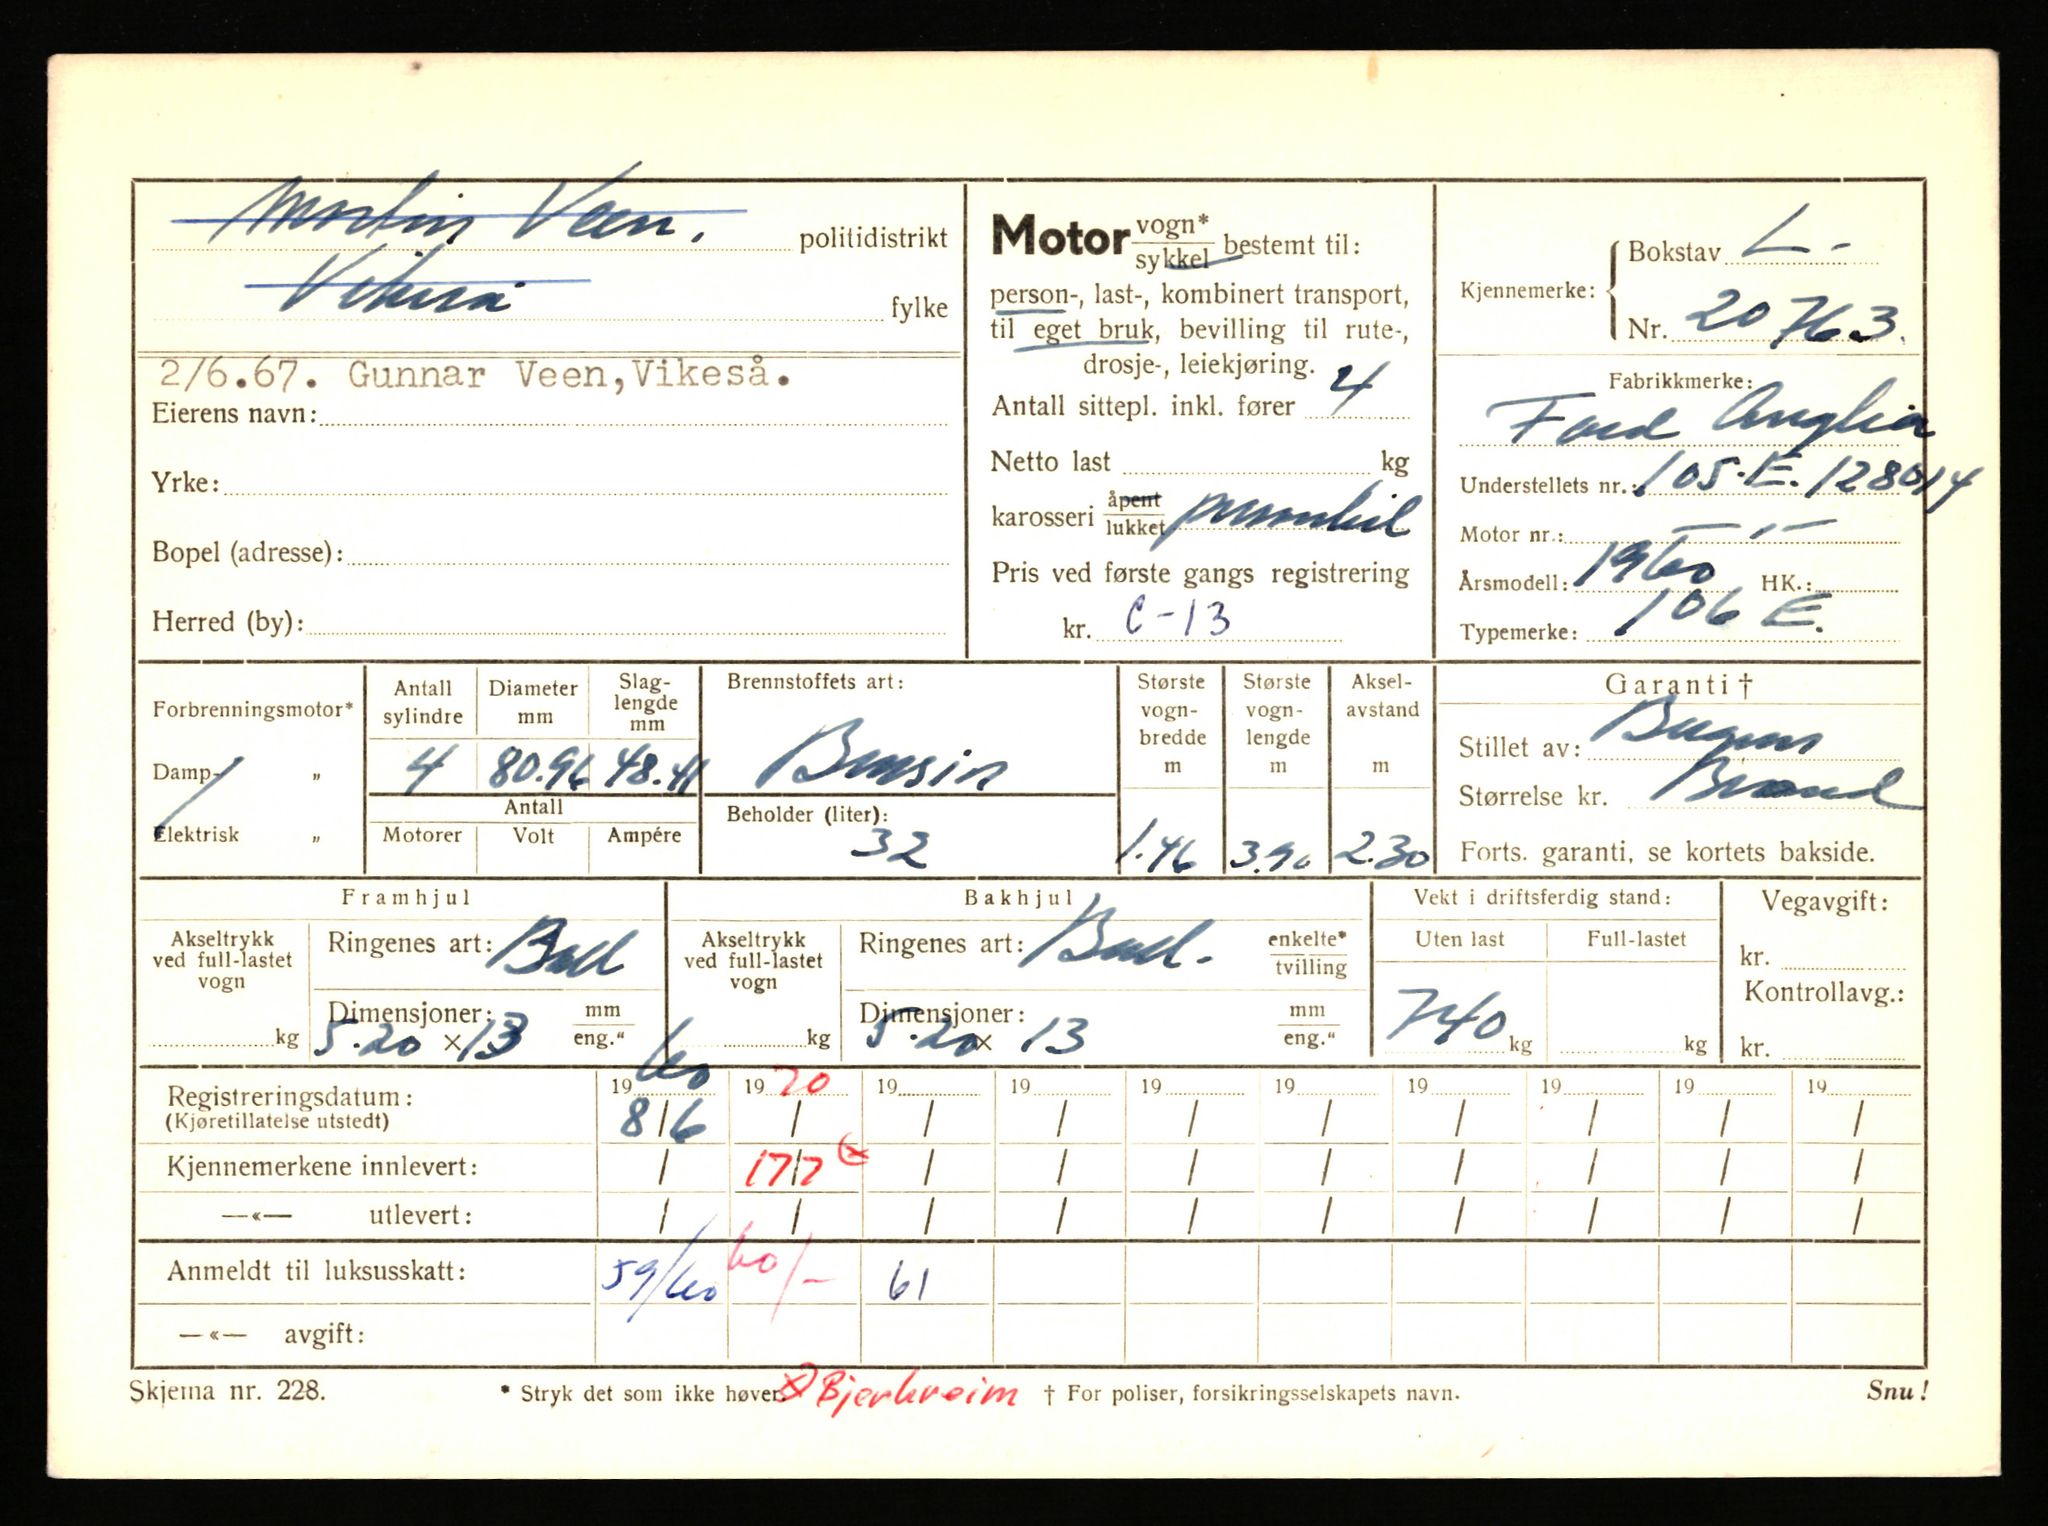 Martin Veen. politidistrikt
Vikeså fylke
2/6.67. Gunnar Veen, Vikeså.
Eierens navn:
Yrke:
Bopel (adresse):
Herred (by):
Motor vogn* / sykkel bestemt til:
person-, last-, kombinert transport,
til eget bruk, bevilling til rute-,
drosje-, leiekjøring.
Antall sittepl. inkl. fører 4
Netto last kg
karosseri åpent / lukket personbil
Pris ved første gangs registrering
kr. C-13
Kjennemerke: Bokstav L-
Nr. 20763.
Fabrikkmerke:
Ford Anglia
Understellets nr.: 105.E.128014
Motor nr.: — " —
Årsmodell: 1960 HK.:
Typemerke: 106 E.
Forbrenningsmotor*
Damp- „
Elektrisk „
Antall sylindre 4
Diameter mm 80.96
Slaglengde mm 48.41
Antall
Motorer Volt Ampére
Brennstoffets art:
Bensin
Beholder (liter):
32
Største vogn-bredde m 1.46
Største vogn-lengde m 3.90
Aksel-avstand m 2.30
Garanti †
Stillet av:
Størrelse kr. Brand
Forts. garanti, se kortets bakside.
Framhjul
Akseltrykk ved full-lastet vogn kg
Ringenes art: Ball
Dimensjoner: mm / eng."
5.20 × 13
Bakhjul
Akseltrykk ved full-lastet vogn kg
Ringenes art: Ball. enkelte* / tvilling
Dimensjoner: mm / eng."
5.20 × 13
Vekt i driftsferdig stand:
Uten last Full-lastet
740 kg kg
Vegavgift:
kr.
Kontrollavg.:
kr.
Registreringsdatum: 1960 1970 19 19 19 19 19 19 19 19
(Kjøretillatelse utstedt) 8/6 / / / / / / / / /
Kjennemerkene innlevert: / 17/7 (x / / / / / / / /
—«— utlevert: / / / / / / / / / /
Anmeldt til luksusskatt: 59/60 60/- 61
—«— avgift:
Skjema nr. 228. * Stryk det som ikke høver. x) Bjerkreim † For poliser, forsikringsselskapets navn. Snu!